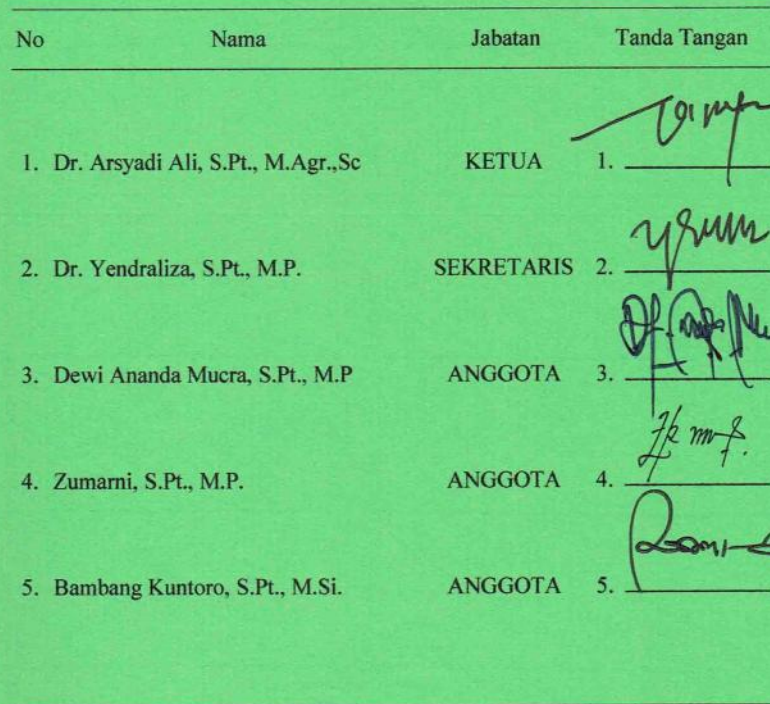 No Nama Jabatan Tanda Tangan
1. Dr. Arsyadi Ali, S.Pt., M.Agr.,Sc KETUA 1.
2. Dr. Yendraliza, S.Pt., M.P. SEKRETARIS 2.
3. Dewi Ananda Mucra, S.Pt., M.P ANGGOTA 3.
4. Zumarni, S.Pt., M.P. ANGGOTA 4.
5. Bambang Kuntoro, S.Pt., M.Si. ANGGOTA 5.